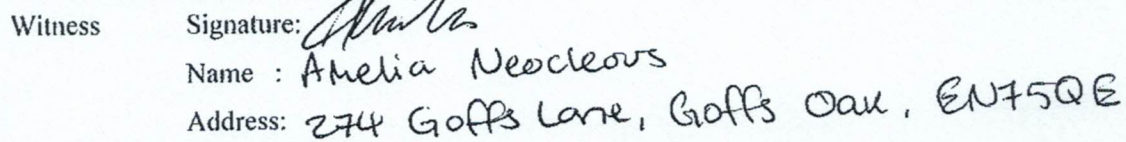 Witness Signature:
Name : Amelia Neocleous
Address: 274 Goffs Lane, Goffs Oak, EN75QE